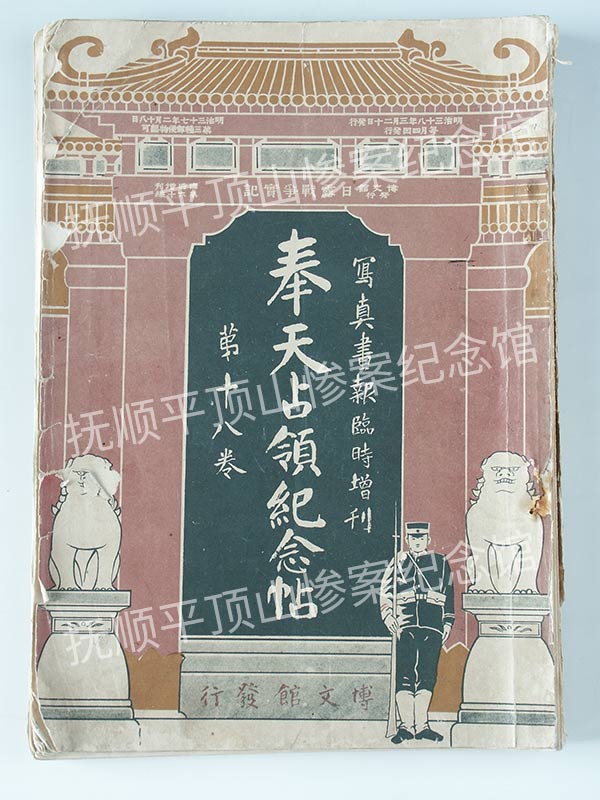 明治三十八年三月二十日發行
每月四回發行
明治三十七年二月十八日
第三種郵便物認可
博文館發行
日露戰爭實記
寫真畫報臨時增刊
奉天占領紀念帖
第十八卷
博文館發行
抚顺平顶山惨案纪念馆
抚顺平顶山惨案纪念馆
抚顺平顶山惨案纪念馆